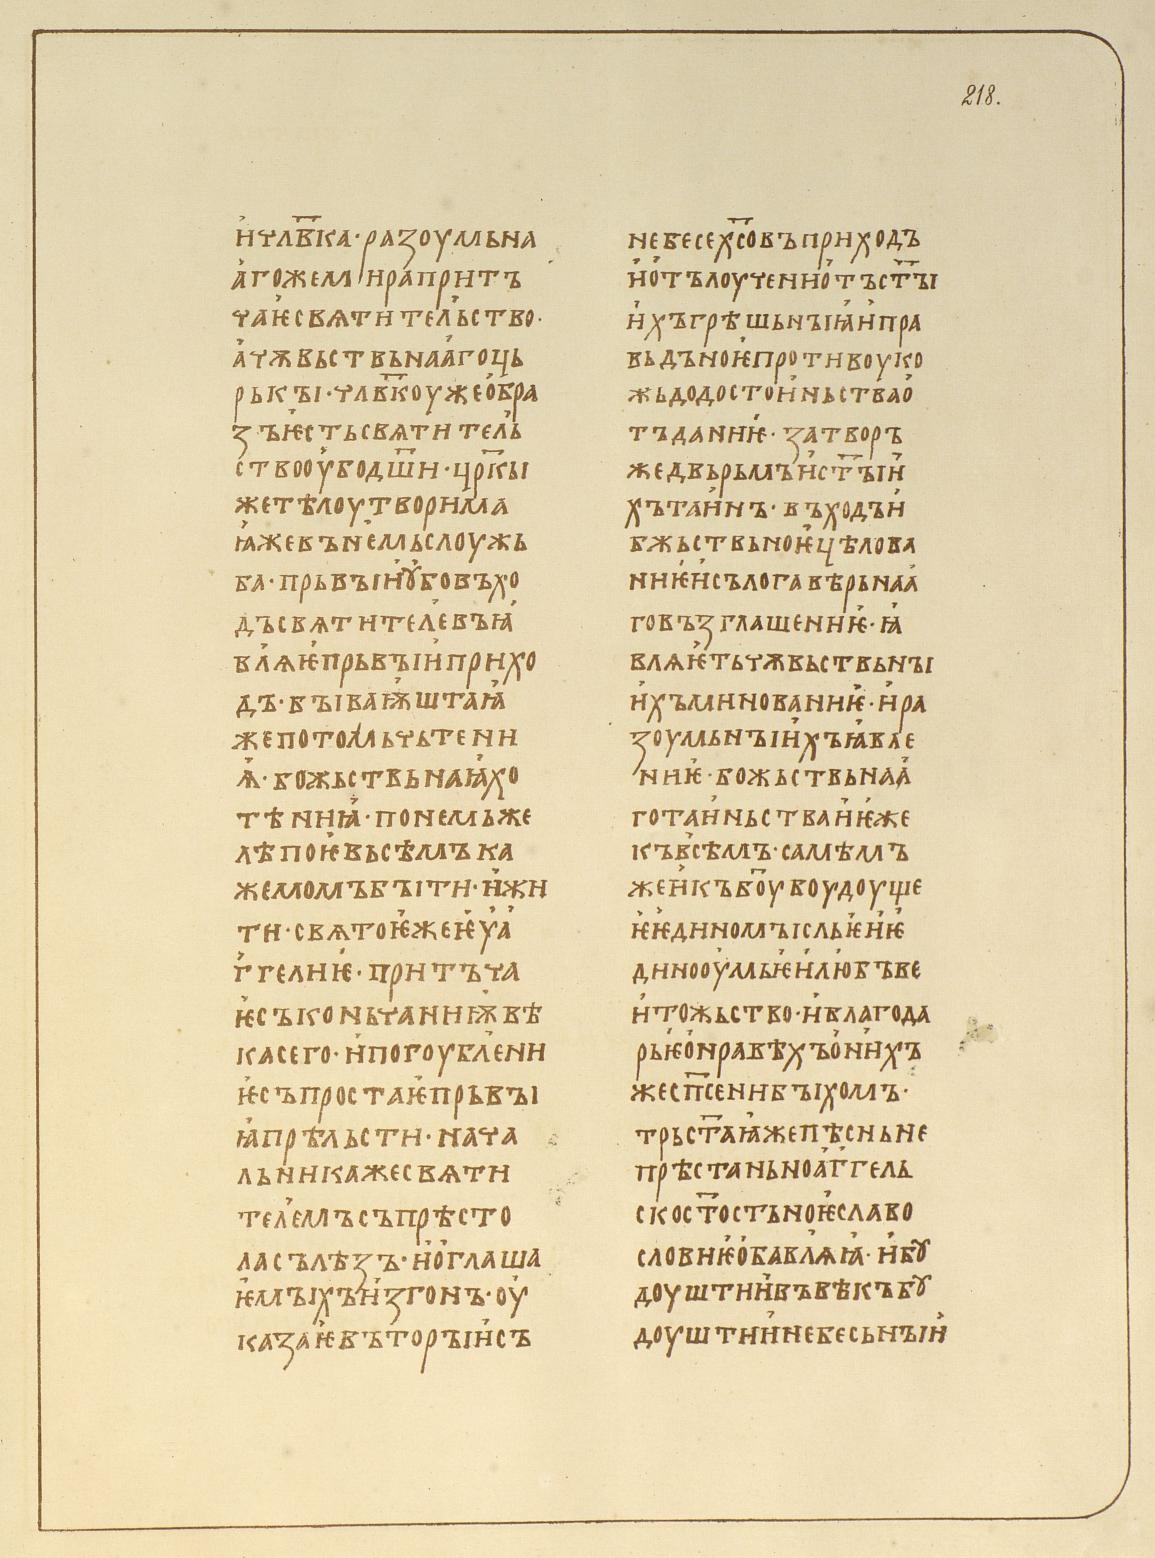 218.
и҆ чл҃вка· разоумьна
а҆гожеми рапритъ
чаѥ҆свѧтительство·
а҆ чѫвьствьнаа҆гоць
рькꙑ· чл҃вкоужео҆бра
зъѥ҆стьсвѧтитель
ствооу҆бодш҃и· цр҃кꙑ
жетѣлоутворима
ꙗ҆жевъне҆мьслоужь
ба· прьвꙑи҆ꙋбовъхо
дъсвѧтителевъꙗ҆
влꙗѥ҆прьвꙑи҆прихо
дъ· бꙑваѭ҆штаꙗ҆
жепотомьчьтени
ꙗ҆· божьствьнаꙗ҆хо
тѣниꙗ҆· понемьже
лѣпоѥ҆вьсѣмъка
жемомъбꙑти· и҆жи
ти· свѧтоѥ҆жеѥ҆уа҆
г҆гелиѥ· притъча
ѥ҆съконьчаниѭ҆вѣ
касего· и҆погоубле҆ни
ѥ҆съпростаѥ҆прьвꙑ
ꙗ҆прѣльсти· нача
льникажесвѧти
теле҆мъсъпрѣсто
ласълѣзъ· и҆о҆глаша
ѥ҆мꙑхъи҆згонъ· оу҆
казаѥ҆въторꙑи҆съ
небесех҃совъприходъ
и҆о҆тълоучениѡ҆тъст҃ꙑ
и҆хъгрѣшьнꙑꙗ҆и҆пра
вьдъноѥ҆противоуко
жьдодостои҆ньствао҆
тъданиѥ҆· затворъ
жедвьрьмъи҆ст҃ꙑи҆
хътаи҆нъ· въходъи҆
бжьствьноѥ҆цѣлова
ниѥ҆и҆съложавѣрьнаа҆
говъзглашениѥ҆· ꙗ҆
влꙗѥ҆тьчѫвьствьнꙑ
и҆хъминованиѥ҆· и҆ра
зоумьнꙑи҆хъꙗ҆вле
ниѥ҆· божьствьнаа҆
готаи҆ньстваи҆ѥ҆же
къвсѣмъ· самѣмъ
жеи҆къбо҃убоудоуще
ѥ҆ѥ҆диномꙑсльѥ҆и҆ѥ҆
динооу҆мьѥ҆и҆любъве
и҆тожьство· и҆благода
рьѥ҆о҆нравѣхъо҆нихъ
жесп҃сенибꙑхомъ·
трьст҃аꙗ҆жепѣсньне
прѣстаньноа҆г҆гель
скост҃остьноѥ҆славо
словиѥ҆о҆бавлꙗꙗ҆· и҆бꙋ
доуштии҆въвѣкъбꙋ
доуштии҆небесьнꙑи҆